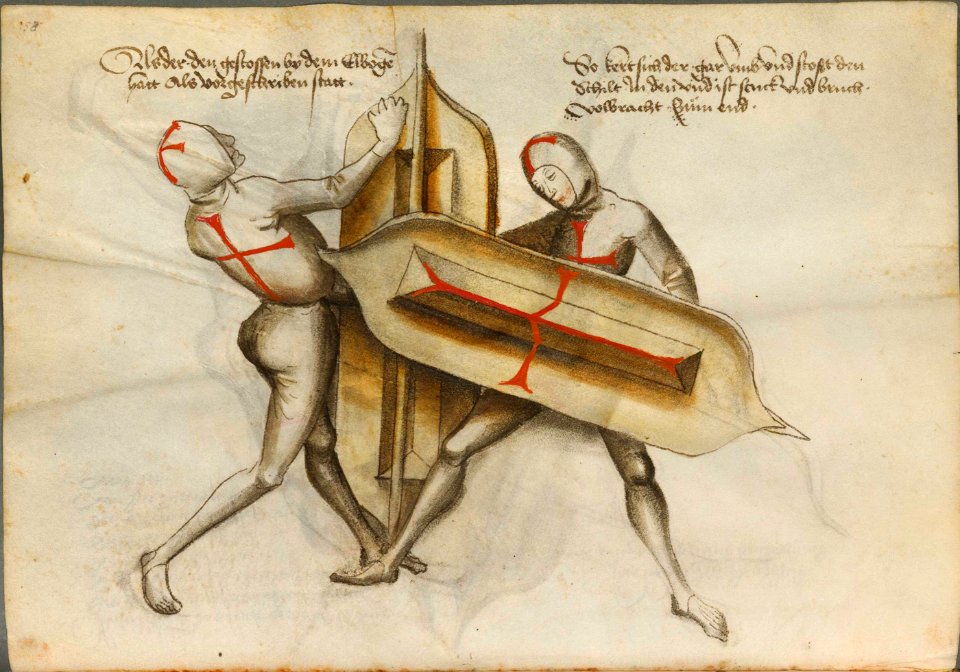 58
Als der den gestossen by dem Elboge
hatt Als vorgeschriben statt ·
So kert sich der gar vmb vnd stost den
Schilt In den vnd ist stuck vnd bruch ·
volbracht · Zum end ·